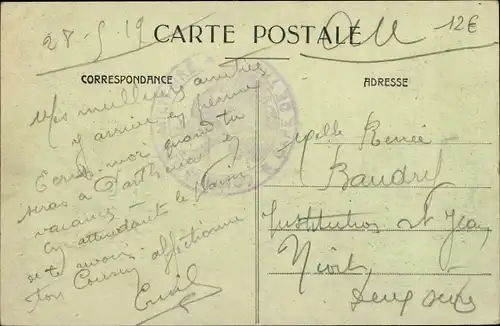 28-5-19
CARTE POSTALE
FM
12€
CORRESPONDANCE
ADRESSE
Mes meilleures amitiés
j'y arrive
Ecris moi quand tu
seras à Parthenay en
vacances -
En attendant le plaisir
de te revoir
ton Cousin affectionné
Emile
Melle Renée
Baudry
Institution St Jean
Niort
Deux Sèvres